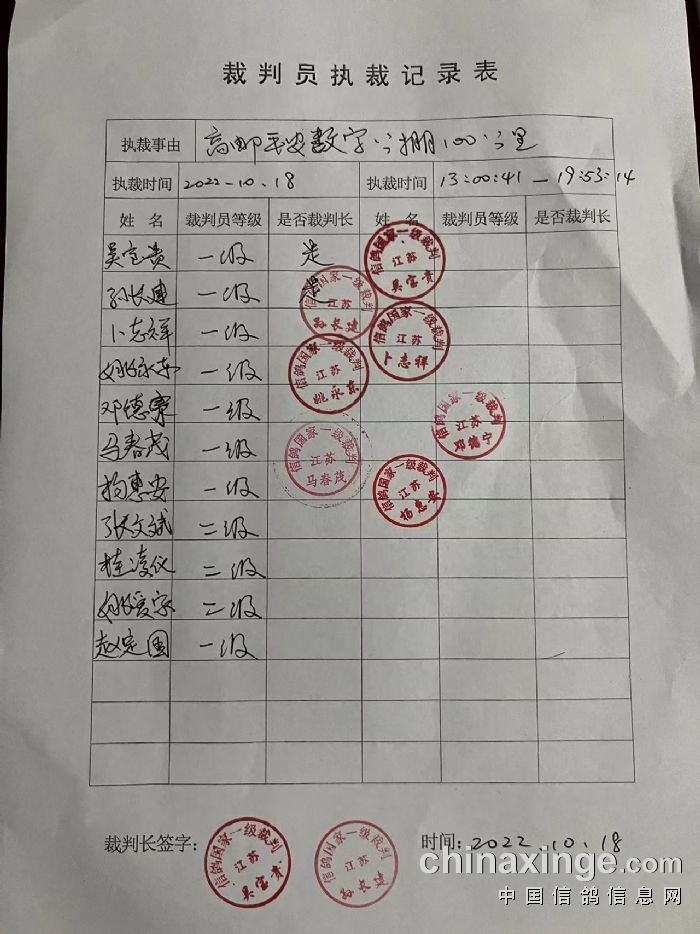 裁判员执裁记录表
执裁事由 高邮平安数字公棚100公里
执裁时间 2022-10.18 执裁时间 13:00:41—19:53:14
姓 名 裁判员等级 是否裁判长 姓 名 裁判员等级 是否裁判长
吴宝贵 一级 是
孙长建 一级 是
卜志祥 一级
姚永东 一级
邓德宁 一级
马春茂 一级
杨惠安 一级
张文斌 二级
桂凌仪 二级
姚爱家 二级
赵定国 一级
信鸽国家一级裁判 江苏 吴宝贵
信鸽国家一级裁判 江苏 孙长建
信鸽国家一级裁判 江苏 卜志祥
信鸽国家一级裁判 江苏 姚永东
信鸽国家一级裁判 江苏 邓德宁
信鸽国家一级裁判 江苏 马春茂
信鸽国家一级裁判 江苏 杨惠安
裁判长签字: 时间: 2022.10.18
信鸽国家一级裁判 江苏 吴宝贵
信鸽国家一级裁判 江苏 孙长建
chinaxinge.com
中国信鸽信息网